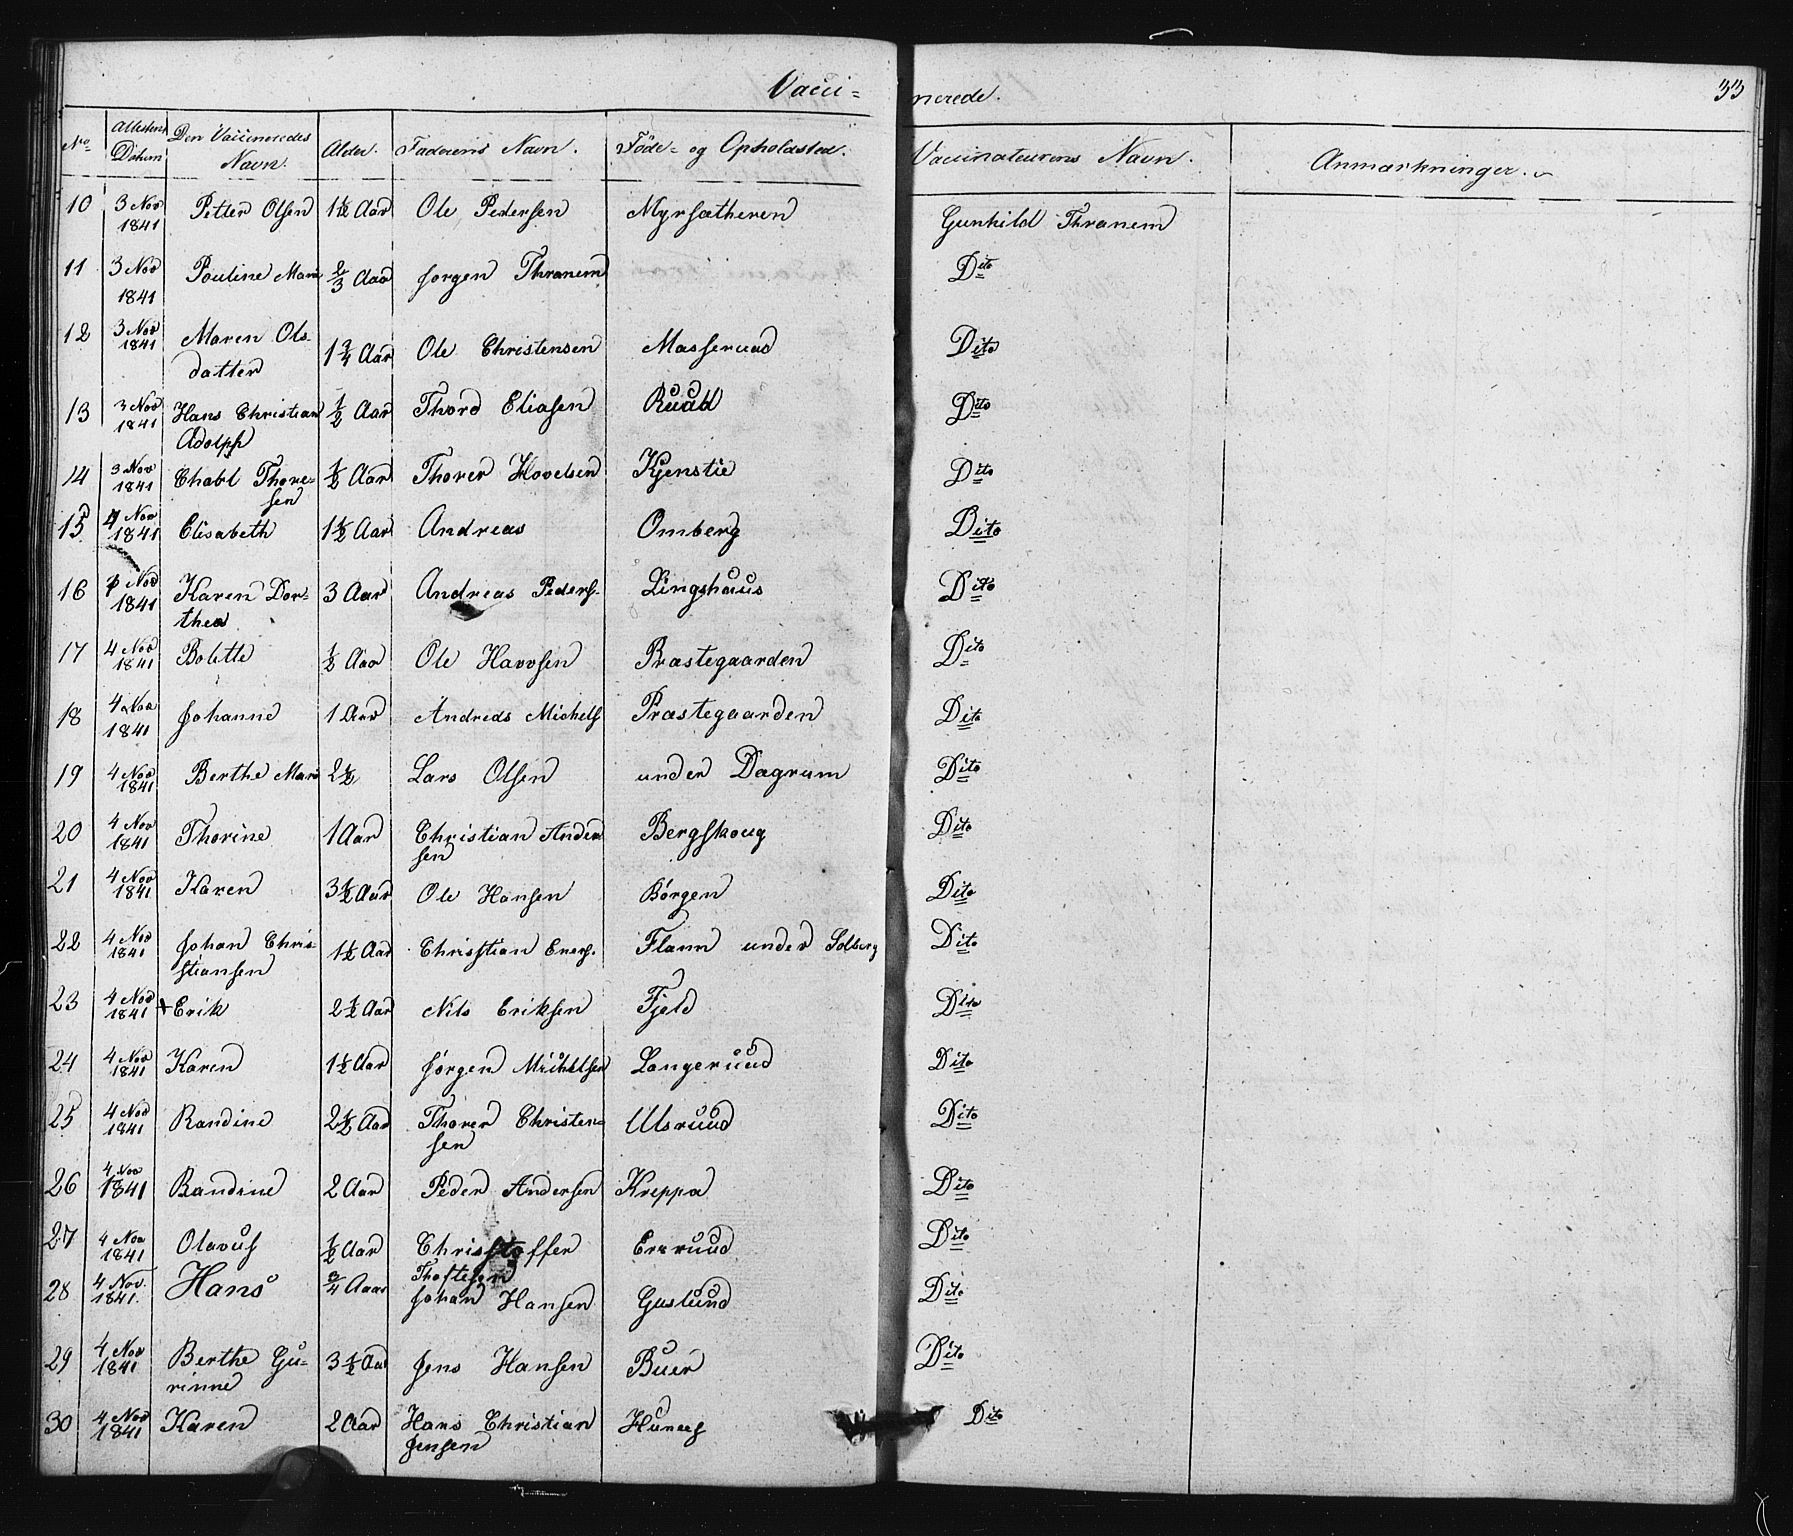 Vacci= nerede. 33
No Attestens Datum Den Vaccineredes Navn. Alder. Faderens Navn. Föde- og Opholdsted. Vaccinateurens Navn. Anmærkninger.
10 3 Nov 1841 Petter Olsen 1½ Aar Ole Pedersen Myrsætheren Gunhild Thranem
11 3 Nov 1841 Pouline Mari 2/3 Aar Jørgen Thranem Dito
12 3 Nov 1841 Maren Ols- 1¾ Aar Ole Christensen Masserud Dito
datter
13 3 Nov 1841 Hans Christian ½ Aar Thord Eliasen Ruud Dito
Adolph
14 3 Nov 1841 Chabl Thore- ½ Aar Thorer Hovelsen Kjenstie Dito
sen
15 4 Nov 1841 Elisabeth 1½ Aar Andreas Omberg Dito
16 4 Nov 1841 Karen Dor- 3 Aar Andreas Peders. Lingshuus Dito
thea
17 4 Nov 1841 Bolette ½ Aar Ole Havosen Præstegaarden Dito
18 4 Nov 1841 Johanne 1 Aar Andreas Michels Præstegaarden Dito
19 4 Nov 1841 Berthe Mari 2½ Lars Olsen under Dagrum Dito
20 4 Nov 1841 Thorine 1 Aar Christian Ander Bergskoug Dito
sen
21 4 Nov 1841 Karen 3½ Aar Ole Hansen Börgen Dito
22 4 Nov 1841 Johan Chris- 1½ Aar Christian Evers. Flann under Solberg Dito
stiansen
23 4 Nov 1841 + Erik 2½ Aar Nils Eriksen Fjeld Dito
24 4 Nov 1841 Karen 1½ Aar Jørgen Michelsen Langeruud Dito
25 4 Nov 1841 Randine 2½ Aar Thorer Christen- Ulsruud Dito
sen
26 4 Nov 1841 Randine 2 Aar Peder Andersen Kreppa Dito
27 4 Nov 1841 Olavus ½ Aar Christoffer Erruud Dito
Thostesen
28 4 Nov. 1841. Hans ¾ Aar Johan Hansen Guslund Dito
29 4 Nov 1841 Berthe Gu- 3½ Aar Jens Hansen Buer Dito
rinne
30 4 Nov 1841 Karen 2 Aar Hans Christian Dito
Jensen